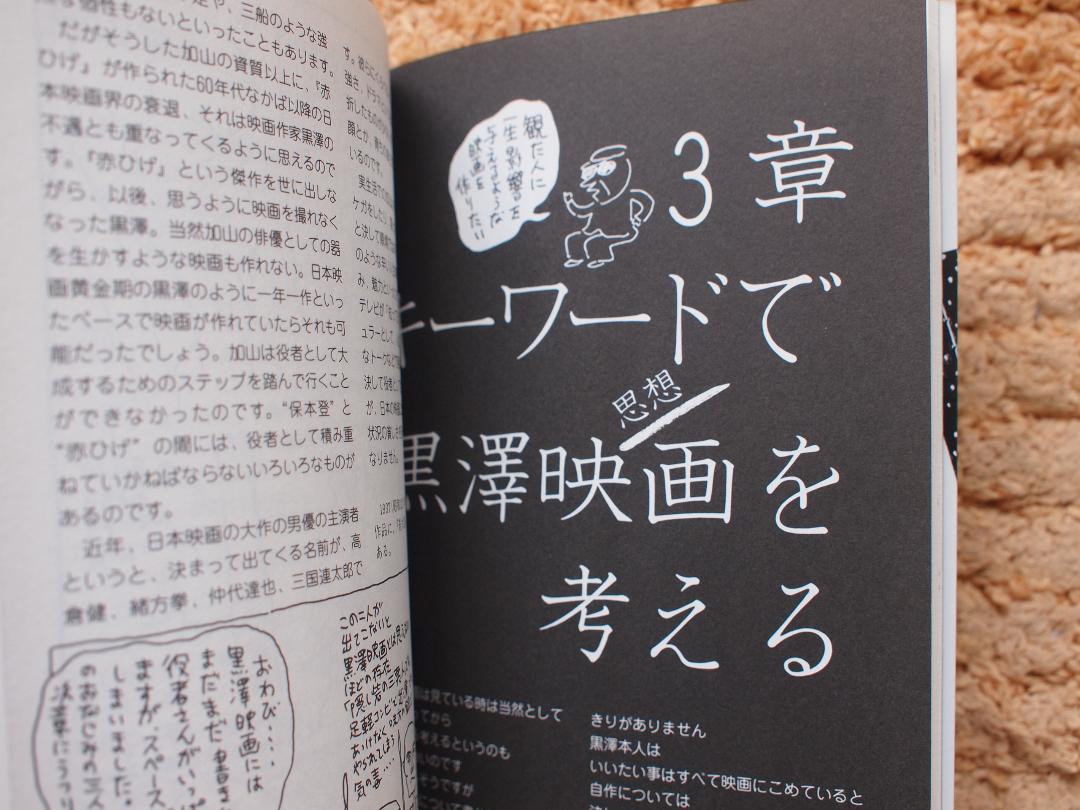 三船のような強
な個性もないといったこともあります。
だがそうした加山の資質以上に、『赤
ひげ』が作られた60年代なかば以降の日
本映画界の衰退、それは映画作家黒澤の
不遇とも重なってくるように思えるので
す。『赤ひげ』という傑作を世に出しな
がら、以後、思うように映画を撮れなく
なった黒澤。当然加山の俳優としての器
を生かすような映画も作れない。日本映
画黄金期の黒澤のように一年一作といっ
たペースで映画が作れていたらそれも可
能だったでしょう。加山は役者として大
成するためのステップを踏んで行くこと
ができなかったのです。“保本登”と
“赤ひげ”の間には、役者として積み重
ねていかねばならないいろいろなものが
あるのです。
近年、日本映画の大作の男優の主演者
というと、決まって出てくる名前が、高
倉健、緒方拳、仲代達也、三国連太郎で
おわび・・・・
黒澤映画には
まだまだ書き
役者さんがいっぱ
ますが、スペース
しまいました。
強さ、ドラマ
折したもの
顔とか、
いるのです。
実生活で
ケガをした
と決して
のような
み、魅力
テレビが
ュラーとして
なトーク
決して役者
が、日本の
状況の
なりません。
1937
作品に、
ある。
この二人が
出てこないと
黒澤映画とは思えない
ほどの存在
「隠し砦の三悪人」
足軽コンビ
あっけなく
やられてしまう
気の毒…
3章
観た人に
一生影響を
与えるような
映画を
作りたい
キーワードで
思想
黒澤映画を
考える
は見ている時は当然として
てから
考えるというのも
いのです
そうですが
きりがありません
黒澤本人は
いいたい事はすべて映画にこめていると
自作については